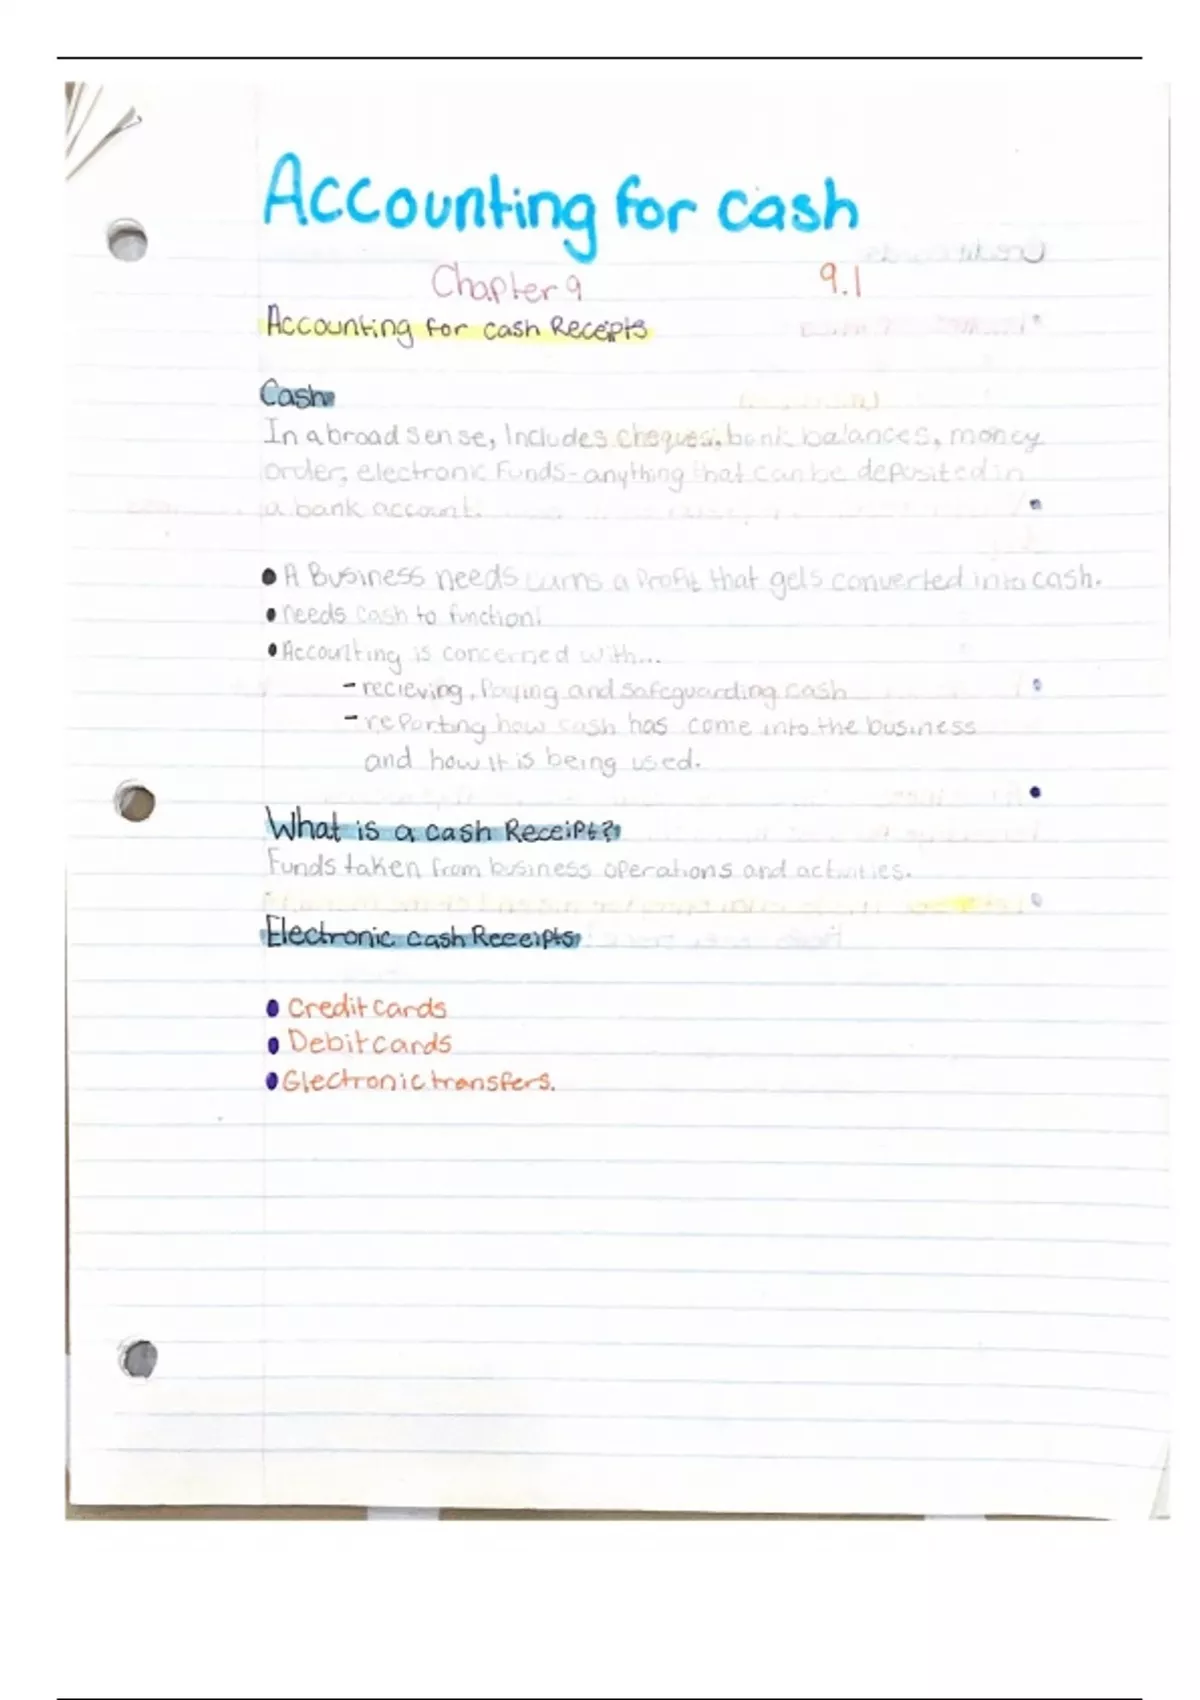 Accounting for cash
Chapter 9 9.1
Accounting for cash Receipts
Cash
In a broad sense, Includes cheques, bank balances, money
order, electronic Funds - anything that can be deposited in
a bank account.
• A Business needs earns a Profit that gets converted into cash.
• needs cash to function!
• Accounting is concerned with...
- recieving, Paying and safeguarding cash
- reporting how cash has come into the business
and how it is being used.
What is a cash Receipt?
Funds taken from business operations and activities.
Electronic cash Receipts
• Credit cards
• Debit cards
• Electronic transfers.